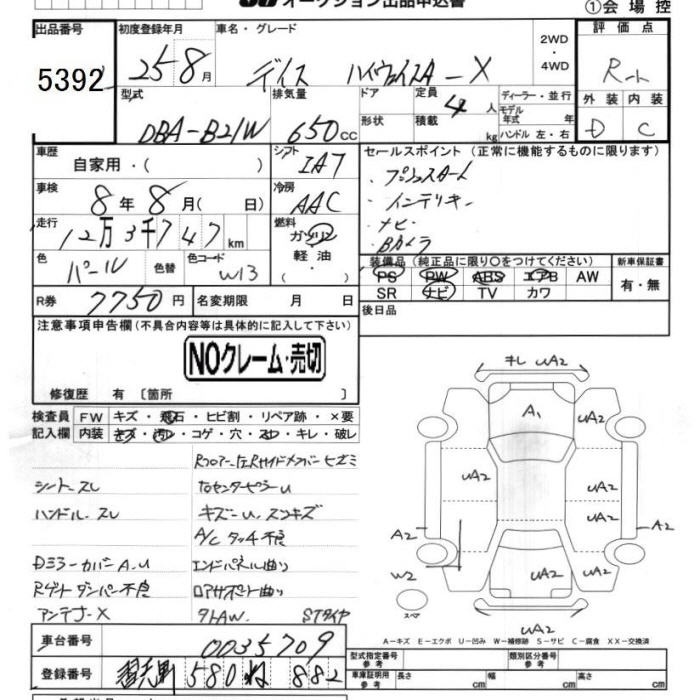 オークション出品申込書
①会場控
出品番号 初度登録年月 車名・グレード 2WD・4WD 評価点
5392 25 8月 デイズ ハイウェイスター X R
外装 内装
型式 排気量 ドア 定員 ディーラー・並行
形状 積載 4人 モデル年式 年
DBA-B21W 650cc kg ハンドル 左・右 D C
車歴 自家用・( ) シフト IA7 セールスポイント (正常に機能するものに限ります)
車検 8年8月( 日) 冷房 AAC ・プッシュスタート
・インテリキー
走行 12万3千747km 燃料 ガソリン 軽油 ・( ) ・ナビ
・Bカメラ
色 パール 色替 色コード W13 装備品 (純正品に限り○をつけてください) 新車保証書
PS PW ABS エアB AW 有・無
SR ナビ TV カワ
R券 7750円 名変期限 月 日 後日品
注意事項申告欄 (不具合内容等は具体的に記入して下さい)
NOクレーム・売切
修復歴 有 〔箇所 〕
検査員 FW キズ・飛石・ヒビ割・リペア跡・×要
記入欄 内装 キズ・汚レ・コゲ・穴・スレ・キレ・破レ
シートスレ
ハンドルスレ キズ・U、スリキズ
A/C タッチ不良
DミラーカバーA.U エンドパネル曲り
Rゲートダンパー不良 ロアサポート曲り
アンテナX 外AW STタイヤ
キレ UA2
A1 UA2
UA2 UA2
UA2
A2 A2
W2 UA2 UA2
スペア
UA2
A－キズ E－エクボ U－凹み W－補修跡 S－サビ C－腐食 XX－交換済
車台番号 0035709
登録番号 580 ね 882
型式指定番号 参考 類別区分番号 参考
車庫証明用 参考 長さ cm 幅 cm 高さ cm